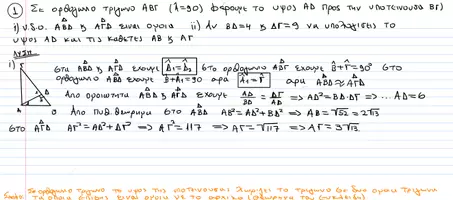 ① Σε ορθογώνιο τρίγωνο ΑΒΓ (Α=90) φέρουμε το ύψος ΑΔ προς την υποτείνουσα ΒΓ
i) ν.δ.ο. ΑΒΔ & ΑΓΔ είναι όμοια ii) Αν ΒΔ=4 & ΔΓ=9 να υπολογίσετε το
ύψος ΑΔ και τις κάθετες ΑΒ & ΑΓ
ΛΥΣΗ
i) Στα ΑΒΔ & ΑΓΔ έχουμε Δ₁=Δ₂ Στο ορθογώνιο ΑΒΓ έχουμε Β+Γ=90 στο
ορθογώνιο ΑΒΔ έχουμε Β+Α₁=90 άρα Α₁=Γ άρα ΑΒΔ≈ΑΓΔ
Από ομοιότητα ΑΒΔ & ΑΓΔ έχουμε ΑΔ/ΔΓ = ΒΔ/ΑΔ ⇒ ΑΔ²=ΒΔ·ΔΓ ⇒ ... ΑΔ=6
Από Πυθ. θεώρημα στο ΑΒΔ ΑΒ²=ΑΔ²+ΒΔ² ⇒ ΑΒ=√52=2√13
Στο ΑΓΔ ΑΓ²=ΑΔ²+ΔΓ² ⇒ ΑΓ²=117 ⇒ ΑΓ=√117 ⇒ ΑΓ=3√13
Σε ορθογώνιο τρίγωνο το ύψος της υποτείνουσας χωρίζει το τρίγωνο σε δύο όμοια τρίγωνα
τα οποία επίσης είναι όμοια με το αρχικό